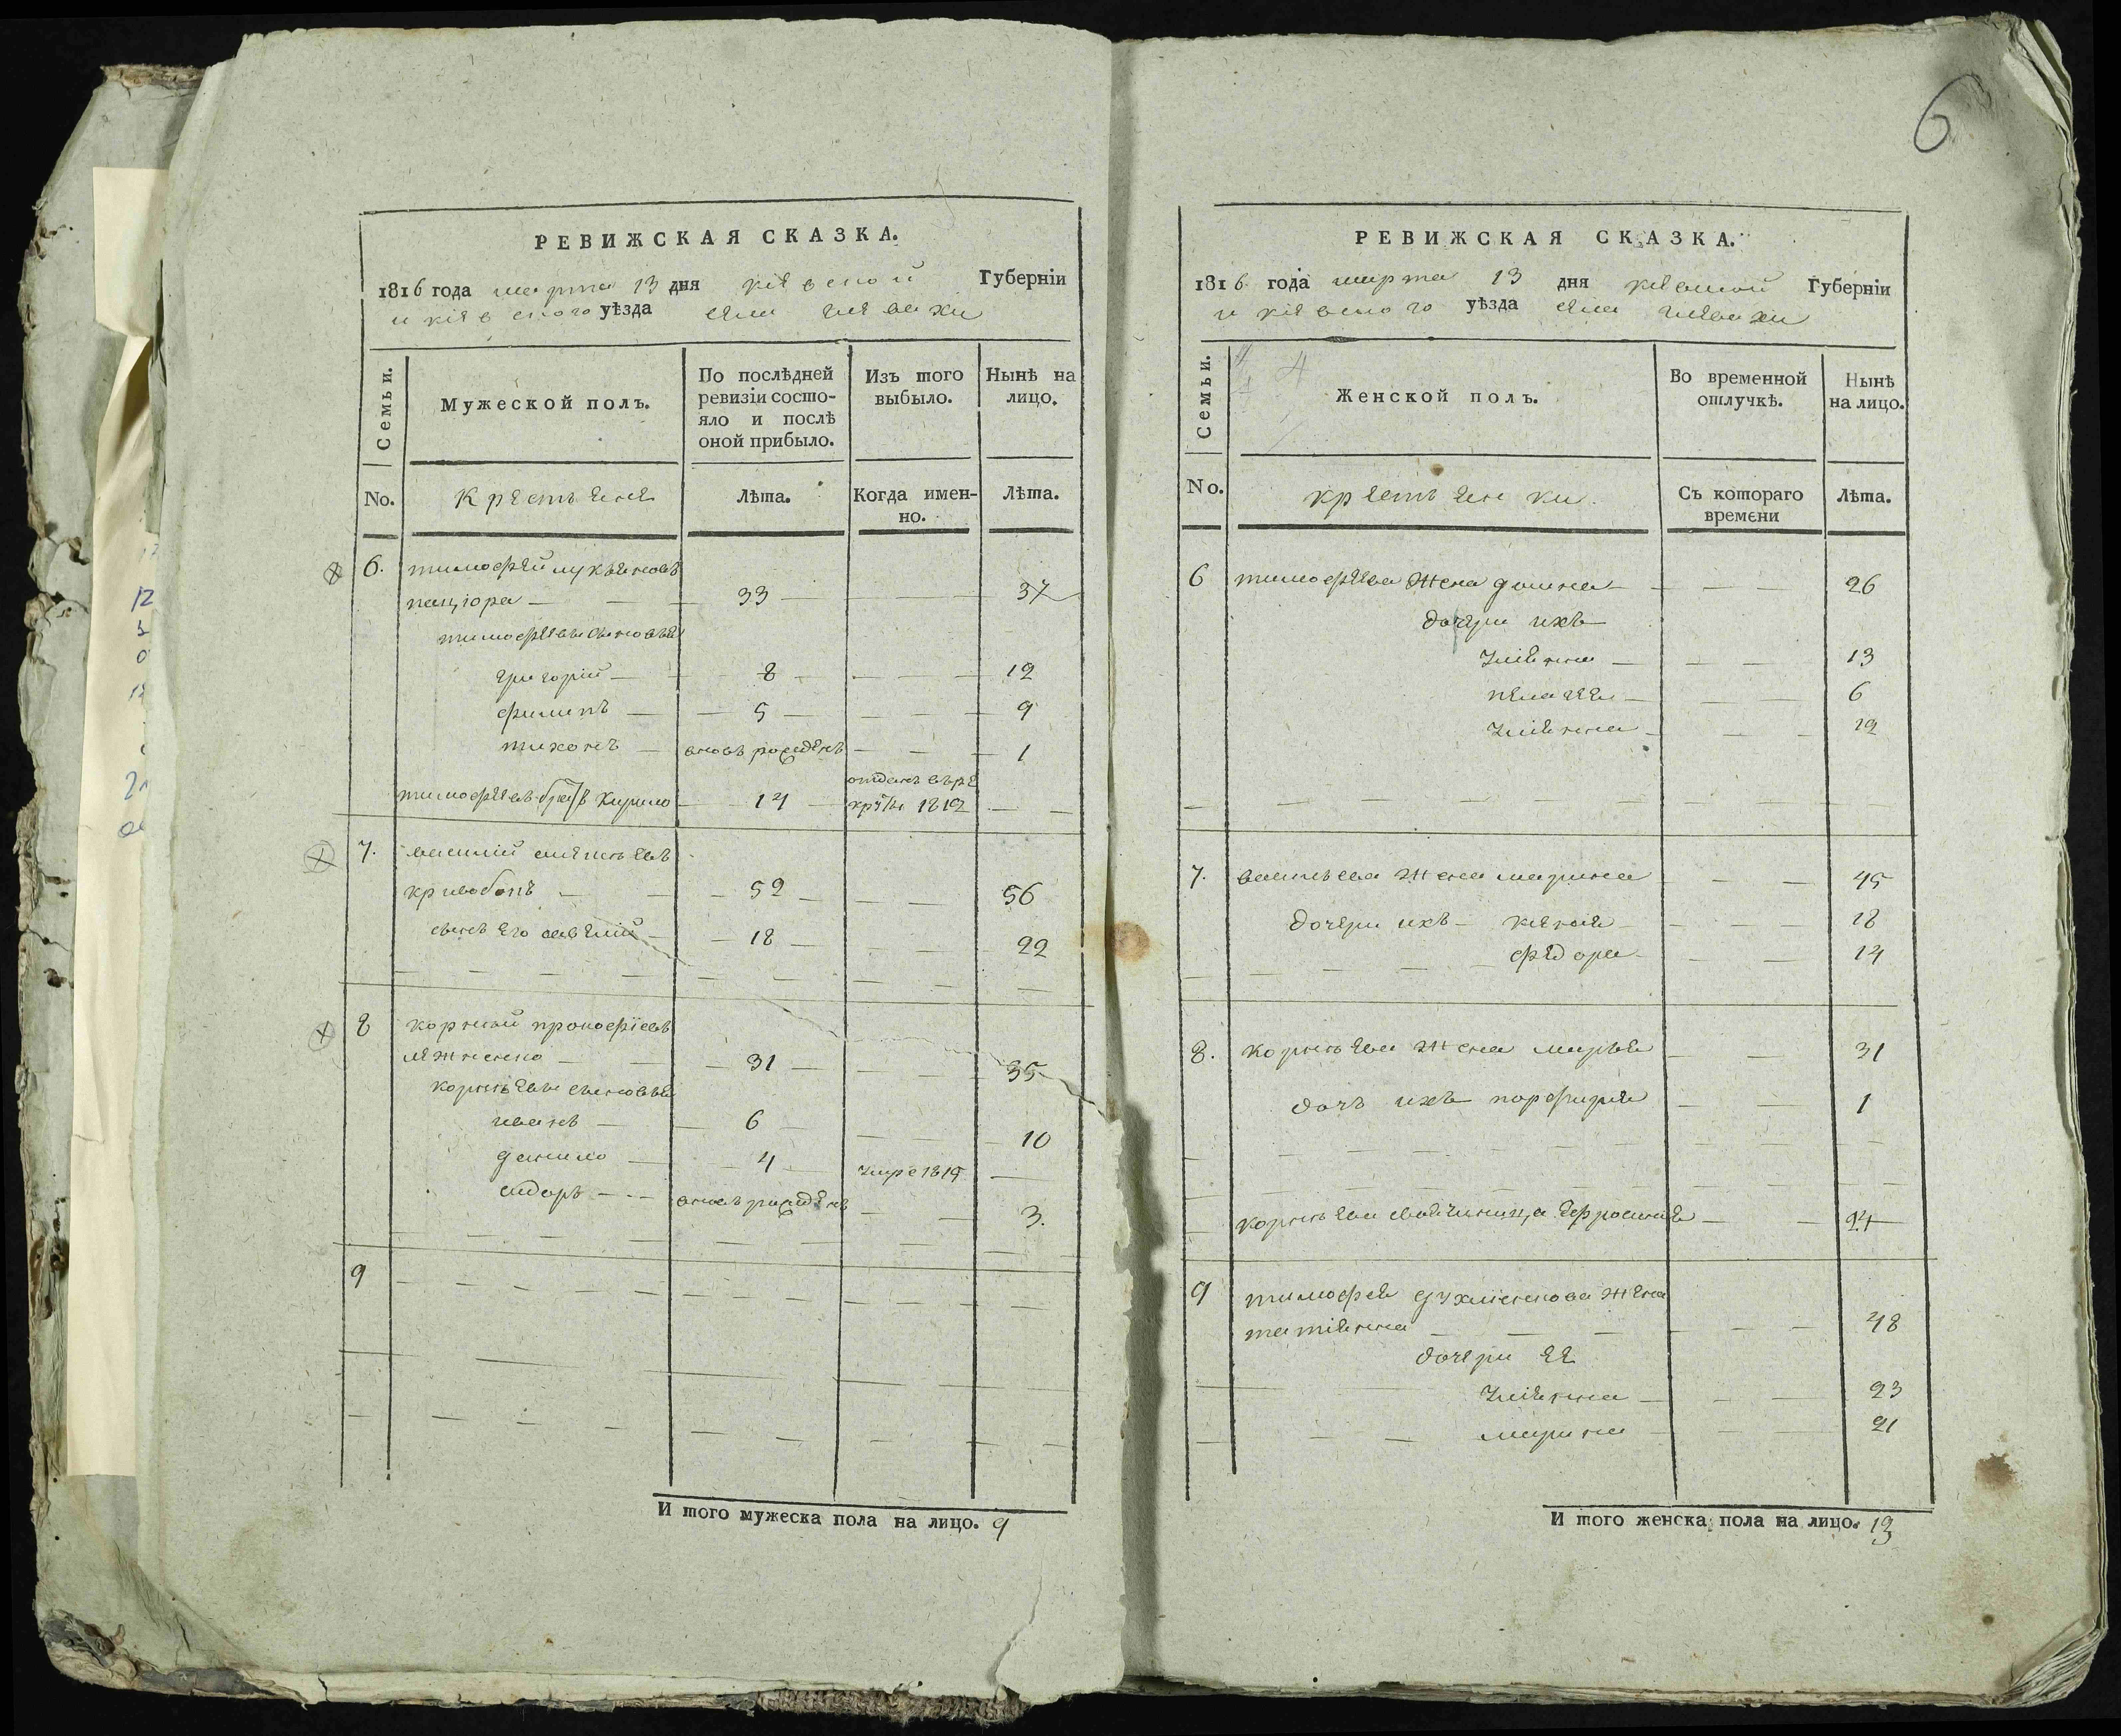 6
РЕВИЖСКАЯ СКАЗКА.
1816 года марта 13 дня кіевской Губерніи
и кіевского уѣзда села глевахи
Семьи.
Мужеской полъ.
По послѣдней
ревизіи состо-
яло и послѣ
оной прибыло.
Изъ того
выбыло.
Нынѣ на
лицо.
No.
Крестьяне
Лѣта.
Когда имен-
но.
Лѣта.
6. тимофей лукьяновъ
пацюра 33 37
тимофеевы сыновья
григорій 8 12
филипъ 5 9
тихонъ вновь рожденъ 1
отданъ въ ре
тимофеевъ братъ Кирило 14 круты 1812
7. василій
кривобокъ 52 56
сынъ его савелій 18 22
8 корнѣй прокофіевъ
31 35
корнѣевы сыновья
иванъ 6 10
данило 4 умре 1815
сидоръ вновь рожденъ 3.
9
И того мужеска пола на лицо. 9
РЕВИЖСКАЯ СКАЗКА.
1816 года марта 13 дня кіевской Губерніи
и кіевского уѣзда села глевахи
Семьи.
Женской полъ.
Во временной
отлучкѣ.
Нынѣ
на лицо.
No.
крестьянки.
Съ котораго
времени
Лѣта.
6 тимофеева жена домна 26
дочери ихъ
уліянна 13
пелагея 6
уліянна 12
7. васильева жена марина 45
дочери ихъ ксенія 18
федора 14
8. корнѣева жена марья 31
дочь ихъ порфирія 1
корнѣева своячиница Ефросинія 24
9 тимофея жена
татіянна 48
дочери ее
уліянна 23
марина 21
И того женска пола на лицо. 13